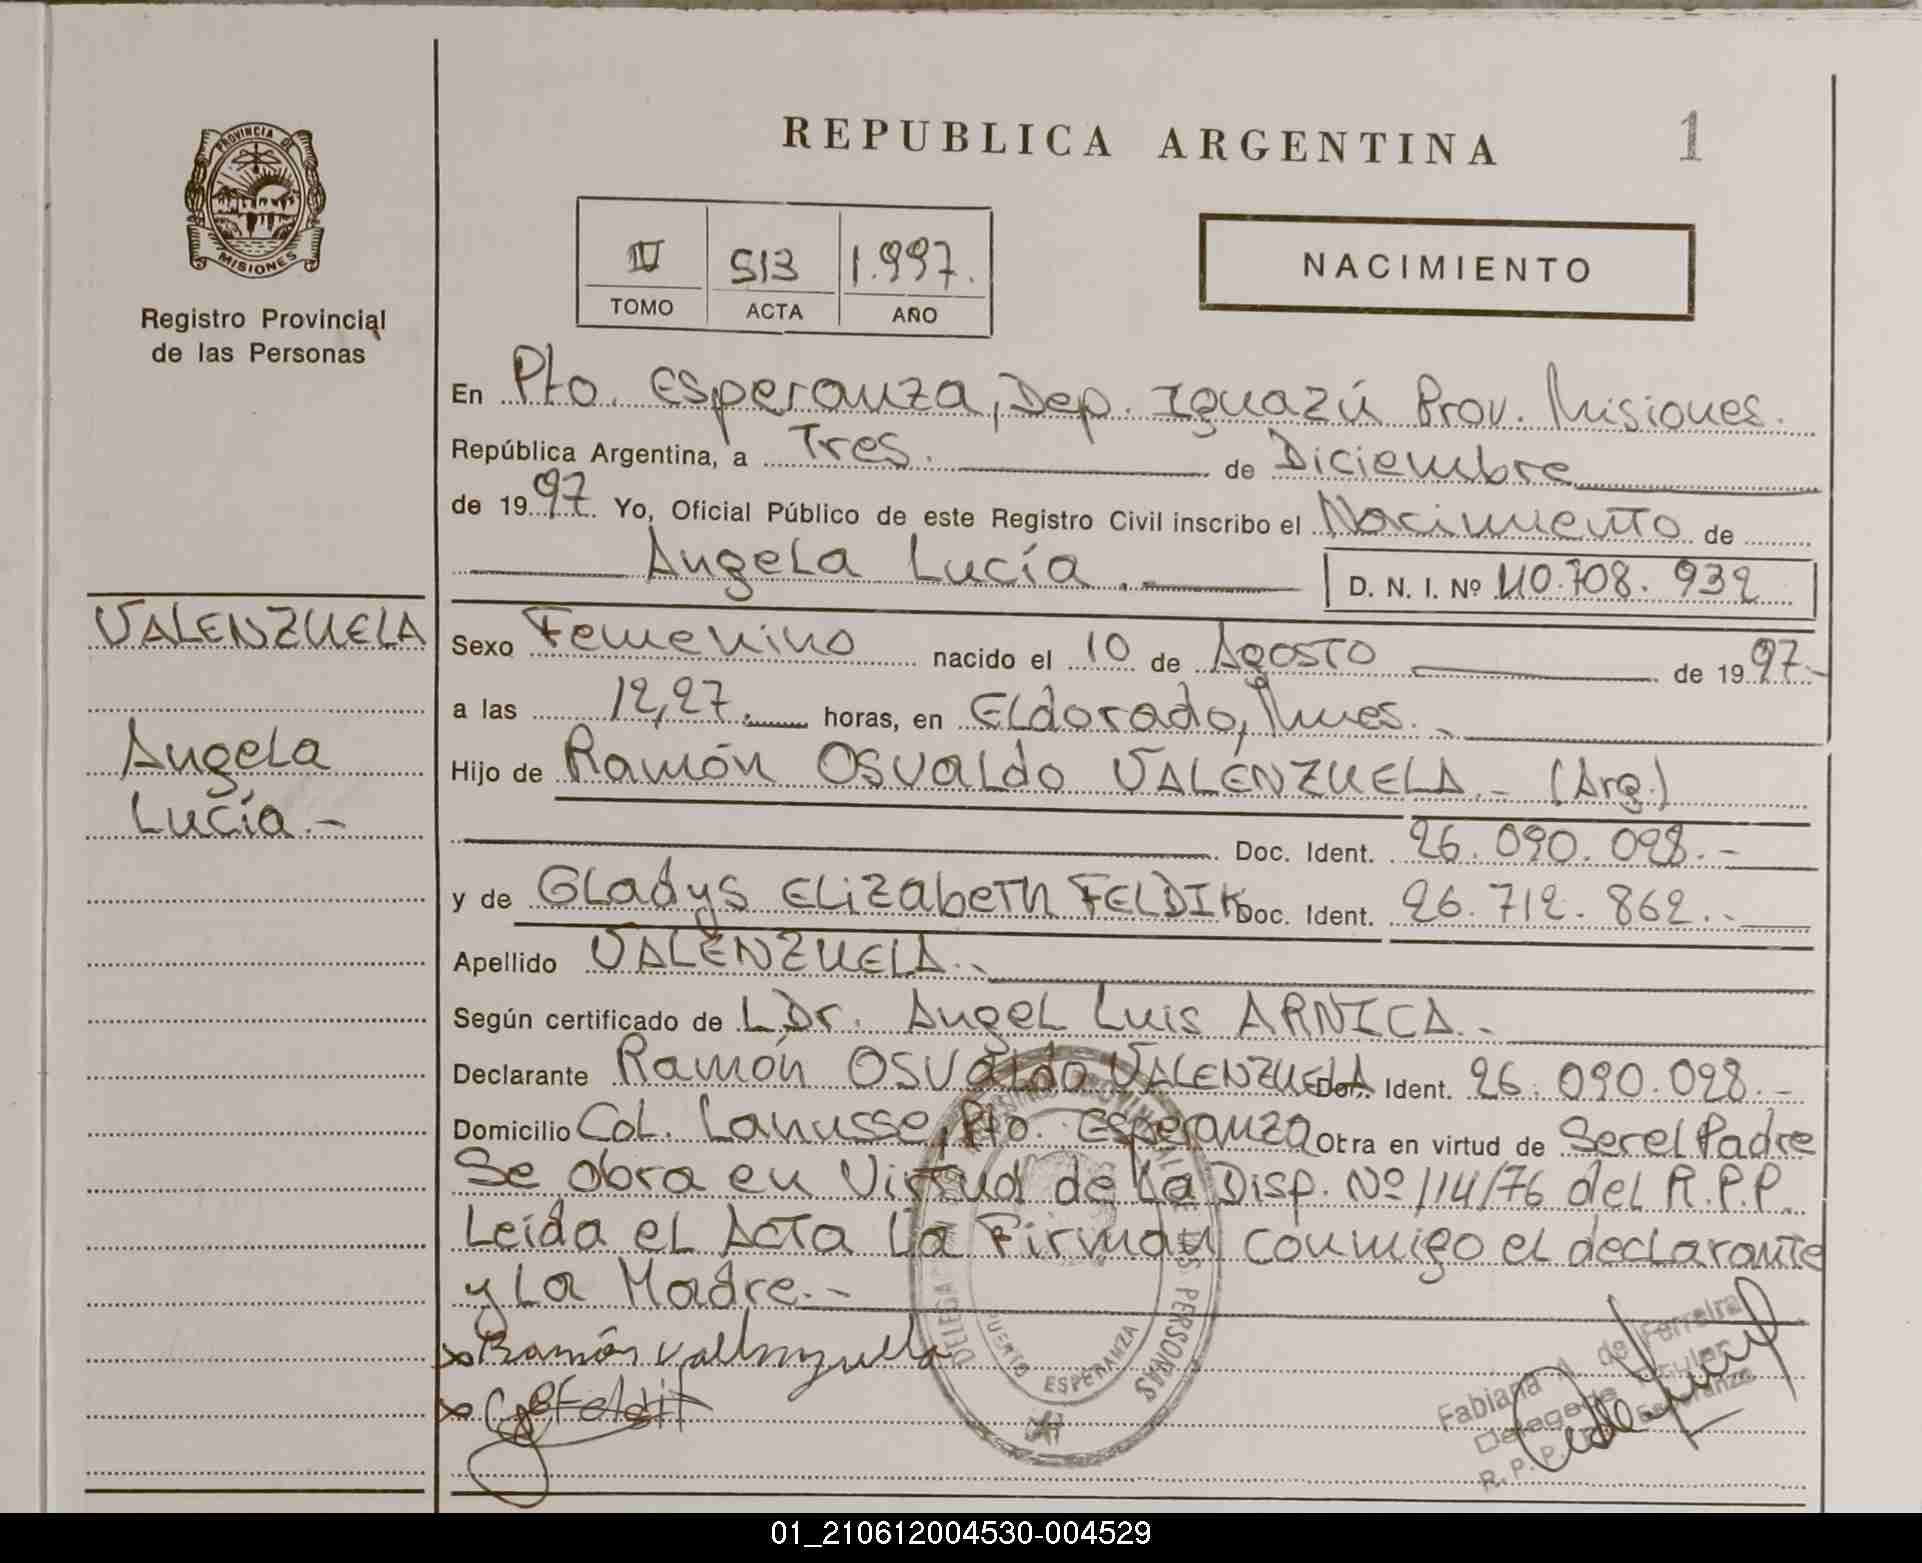 PROVINCIA DE
MISIONES
Registro Provincial
de las Personas
VALENZUELA
Angela
Lucía.-
REPUBLICA ARGENTINA
1
IV 513 1.997.
TOMO ACTA AÑO
NACIMIENTO
En Pto. Esperanza, Dep. Iguazú Prov. Misiones.
República Argentina, a Tres. de Diciembre
de 1997. Yo, Oficial Público de este Registro Civil inscribo el Nacimiento de
Angela Lucía.
D. N. I. Nº 40.708.932
Sexo Femenino nacido el 10 de Agosto de 1997.-
a las 12,27. horas, en Eldorado, Mnes.
Hijo de Ramón Osvaldo VALENZUELA.- (Arg.)
Doc. Ident. 26.090.098.-
y de Gladys Elizabeth FELDIK Doc. Ident. 26.712.862.-
Apellido VALENZUELA.-
Según certificado de Dr. Angel Luis ARNICA.-
Declarante Ramón Osvaldo VALENZUELA Doc. Ident. 26.090.098.-
Domicilio Col. Lanusse, Pto. Esperanza Obra en virtud de Ser el Padre
Se obra en Virtud de La Disp. Nº 114/76 del R.P.P.
Leída el Acta La Firman conmigo el declarante
y La Madre.-
Ramón Valenzuella
Feldik
PERSONAS
PUERTO ESPERANZA
Fabiana de Ferreira
Delegada Titular
R. P. P. Esperanza
01_210612004530-004529